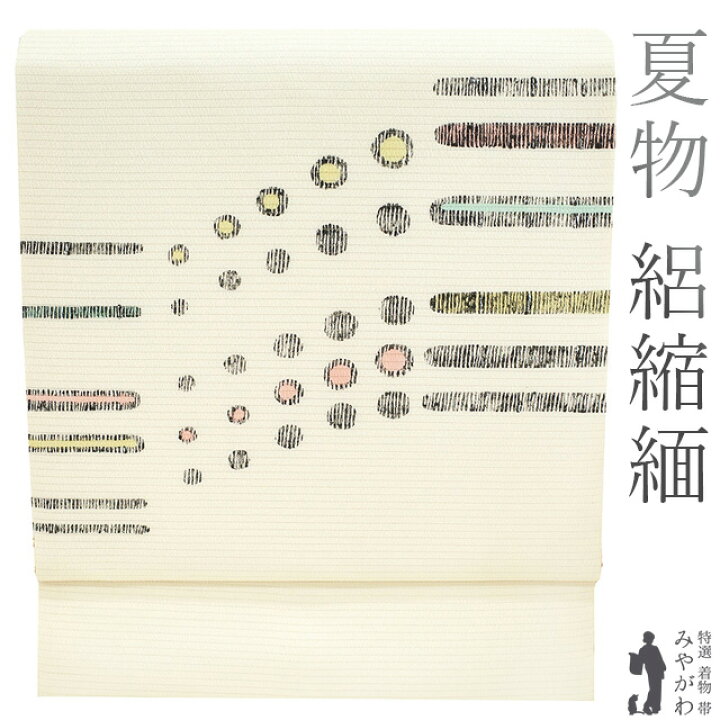 夏物 絽縮緬
特選 着物 帯
みやがわ